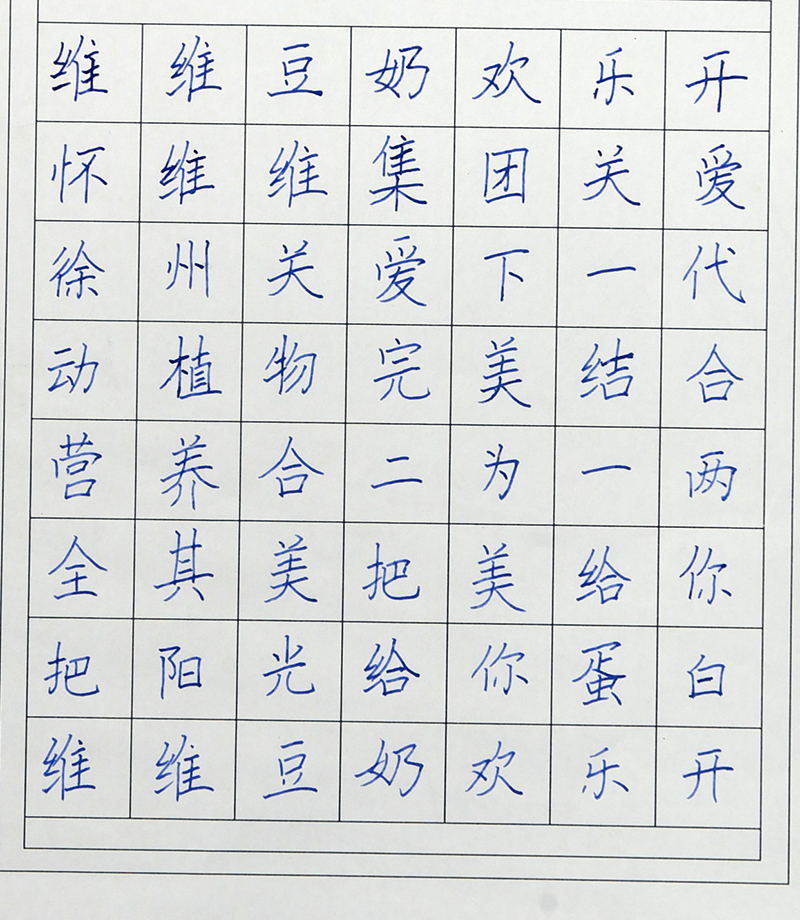 维维豆奶欢乐开
怀维维集团关爱
徐州关爱下一代
动植物完美结合
营养合二为一两
全其美把美给你
把阳光给你蛋白
维维豆奶欢乐开